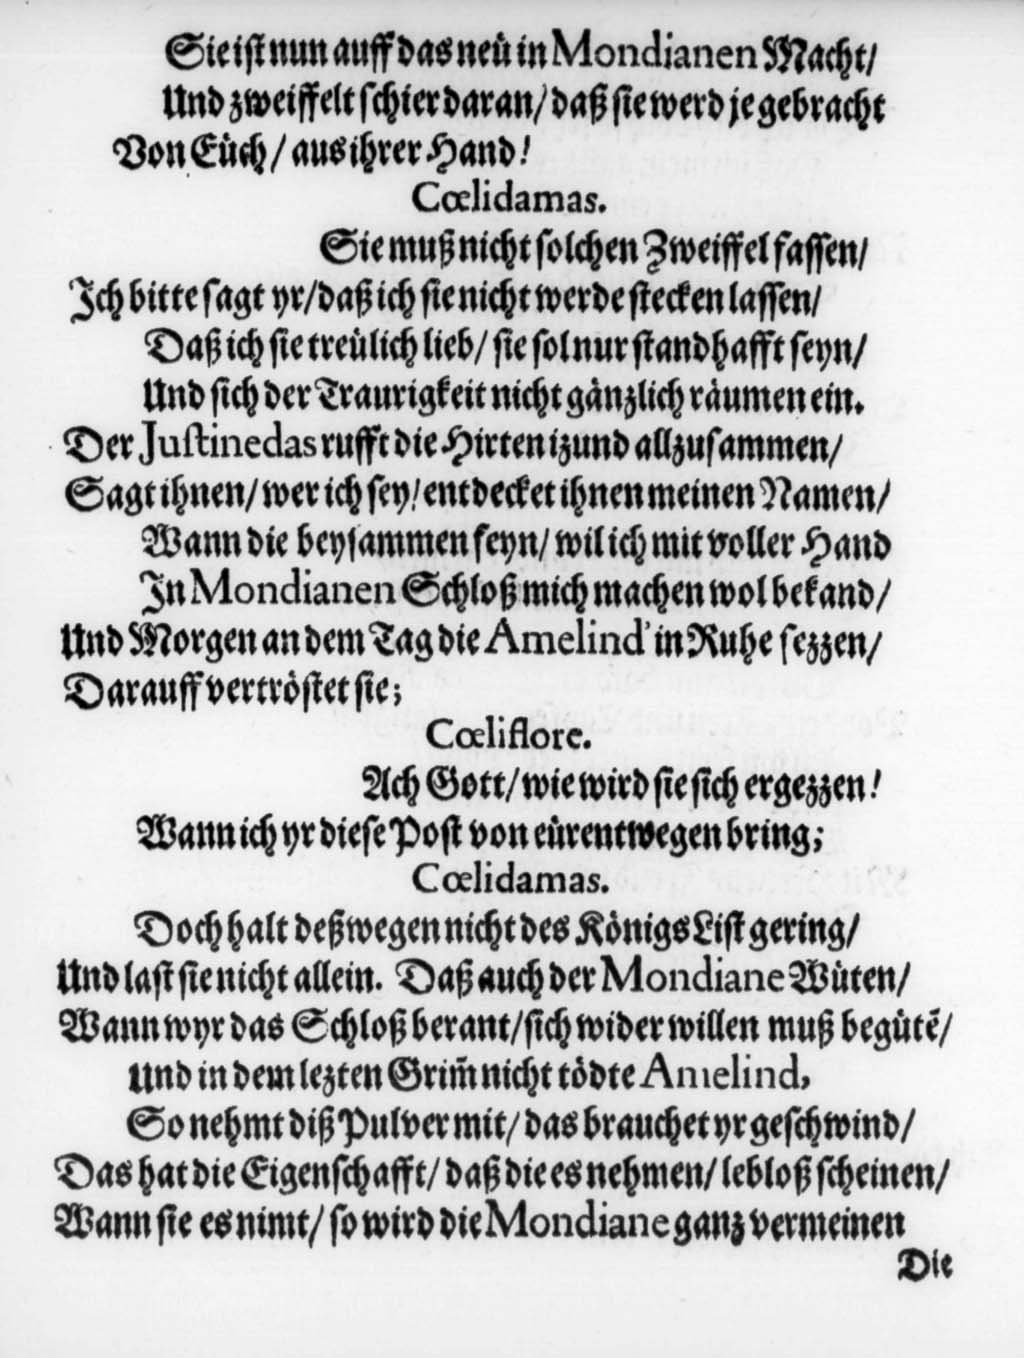 Sie ist nun auff das neü in Mondianen Macht/
Und zweiffelt schier daran/ daß sie werd je gebracht
Von Eüch/ aus ihrer Hand!
Cœlidamas.
Sie muß nicht solchen Zweiffel fassen/
Ich bitte sagt yr/ daß ich sie nicht werde stecken lassen/
Daß ich sie treülich lieb/ sie sol nur standhafft seyn/
Und sich der Traurigkeit nicht gänzlich räumen ein.
Der Justinedas rufft die Hirten izund allzusammen/
Sagt ihnen/ wer ich sey! entdecket ihnen meinen Namen/
Wann die beysammen seyn/ wil ich mit voller Hand
In Mondianen Schloß mich machen wol bekand/
Und Morgen an dem Tag die Amelind' in Ruhe sezzen/
Darauff vertröstet sie;
Cœliflore.
Ach Gott/ wie wird sie sich ergezzen!
Wann ich yr diese Post von eürentwegen bring;
Cœlidamas.
Doch halt deßwegen nicht des Königs List gering/
Und last sie nicht allein. Daß auch der Mondiane Wüten/
Wann wyr das Schloß berant/ sich wider willen muß begütẽ/
Und in dem lezten Grim̃ nicht tödte Amelind,
So nehmt diß Pulver mit/ das brauchet yr geschwind/
Das hat die Eigenschafft/ daß die es nehmen/ lebloß scheinen/
Wann sie es nimt/ so wird die Mondiane ganz vermeinen
Die